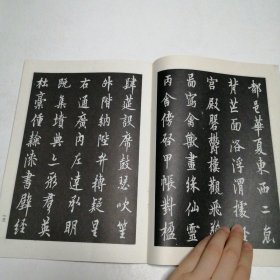 都邑華夏東西二京
背芒面洛浮渭據
宮殿盤鬱樓觀飛
圖寫禽獸畫綵仙靈
丙舍傍啓甲帳對楹
肆筵設席鼓瑟吹笙
升階納陛弁轉疑星
右通廣內左達承明
既集墳典亦聚群英
杜稾鍾隸漆書壁經